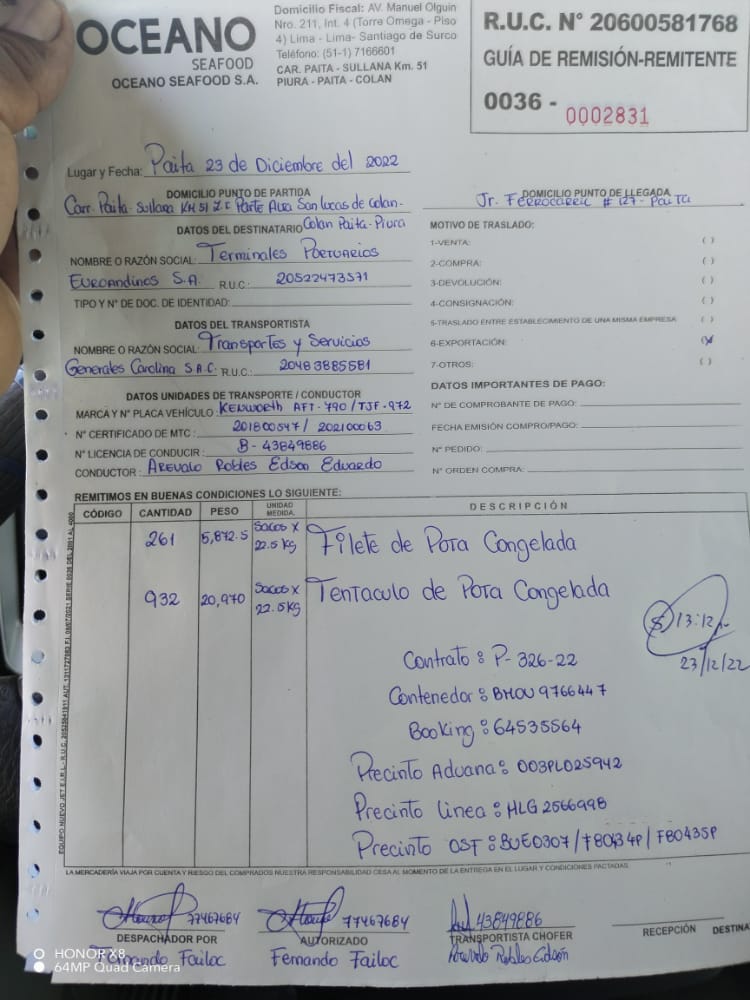 OCEANO
SEAFOOD
OCEANO SEAFOOD S.A.
Domicilio Fiscal: AV. Manuel Olguin
Nro. 211, Int. 4 (Torre Omega - Piso
4) Lima - Lima- Santiago de Surco
Teléfono: (51-1) 7166601
CAR. PAITA - SULLANA Km. 51
PIURA - PAITA - COLAN
R.U.C. N° 20600581768
GUÍA DE REMISIÓN-REMITENTE
0036 - 0002831
Lugar y Fecha: Paita 23 de Diciembre del 2022
DOMICILIO PUNTO DE PARTIDA
Carr. Paita Sullana KM 51 Z.I Parte Alta San Lucas de Colan-
Colan Paita-Piura
DOMICILIO PUNTO DE LLEGADA
Jr. Ferrocarril # 127- Paita
DATOS DEL DESTINATARIO
NOMBRE O RAZÓN SOCIAL: Terminales Portuarios
Euroandinos S.A. R.U.C: 20522473571
TIPO Y N° DE DOC. DE IDENTIDAD:
DATOS DEL TRANSPORTISTA
NOMBRE O RAZÓN SOCIAL: Transportes y Servicios
Generales Carolina S.A.C. R.U.C: 20483885581
DATOS UNIDADES DE TRANSPORTE / CONDUCTOR
MARCA Y N° PLACA VEHÍCULO: Kenworth AFT-790/TJF-972
N° CERTIFICADO DE MTC: 201800547/ 202100063
N° LICENCIA DE CONDUCIR: B-43849886
CONDUCTOR: Arevalo Robles Edson Eduardo
MOTIVO DE TRASLADO:
1-VENTA: ( )
2-COMPRA: ( )
3-DEVOLUCIÓN: ( )
4-CONSIGNACIÓN: ( )
5-TRASLADO ENTRE ESTABLECIMIENTO DE UNA MISMA EMPRESA ( )
6-EXPORTACIÓN: (X)
7-OTROS: ( )
DATOS IMPORTANTES DE PAGO:
N° DE COMPROBANTE DE PAGO:
FECHA EMISIÓN COMPRO/PAGO:
N° PEDIDO:
N° ORDEN COMPRA:
REMITIMOS EN BUENAS CONDICIONES LO SIGUIENTE:
CÓDIGO CANTIDAD PESO UNIDAD MEDIDA DESCRIPCIÓN
261 5,872.5 Sacos x 22.5 kg Filete de Pota Congelada
932 20,970 Sacos x 22.5 kg Tentaculo de Pota Congelada
13:12
23/12/22
Contrato: P-326-22
Contenedor: BMOU 9766447
Booking: 64535564
Precinto Aduana: 003PL025942
Precinto Linea: HLG 2566998
Precinto OSF: BUE0307/F80434P/F80435P
LA MERCADERÍA VIAJA POR CUENTA Y RIESGO DEL COMPRADOS NUESTRA RESPONSABILIDAD CESA AL MOMENTO DE LA ENTREGA EN EL LUGAR Y CONDICIONES PACTADAS.
77467684 77467684 43849886
DESPACHADOR POR AUTORIZADO TRANSPORTISTA CHOFER RECEPCIÓN DESTINA
Fernando Failoc Fernando Failoc Arevalo Robles Edson
HONOR X8
64MP Quad Camera